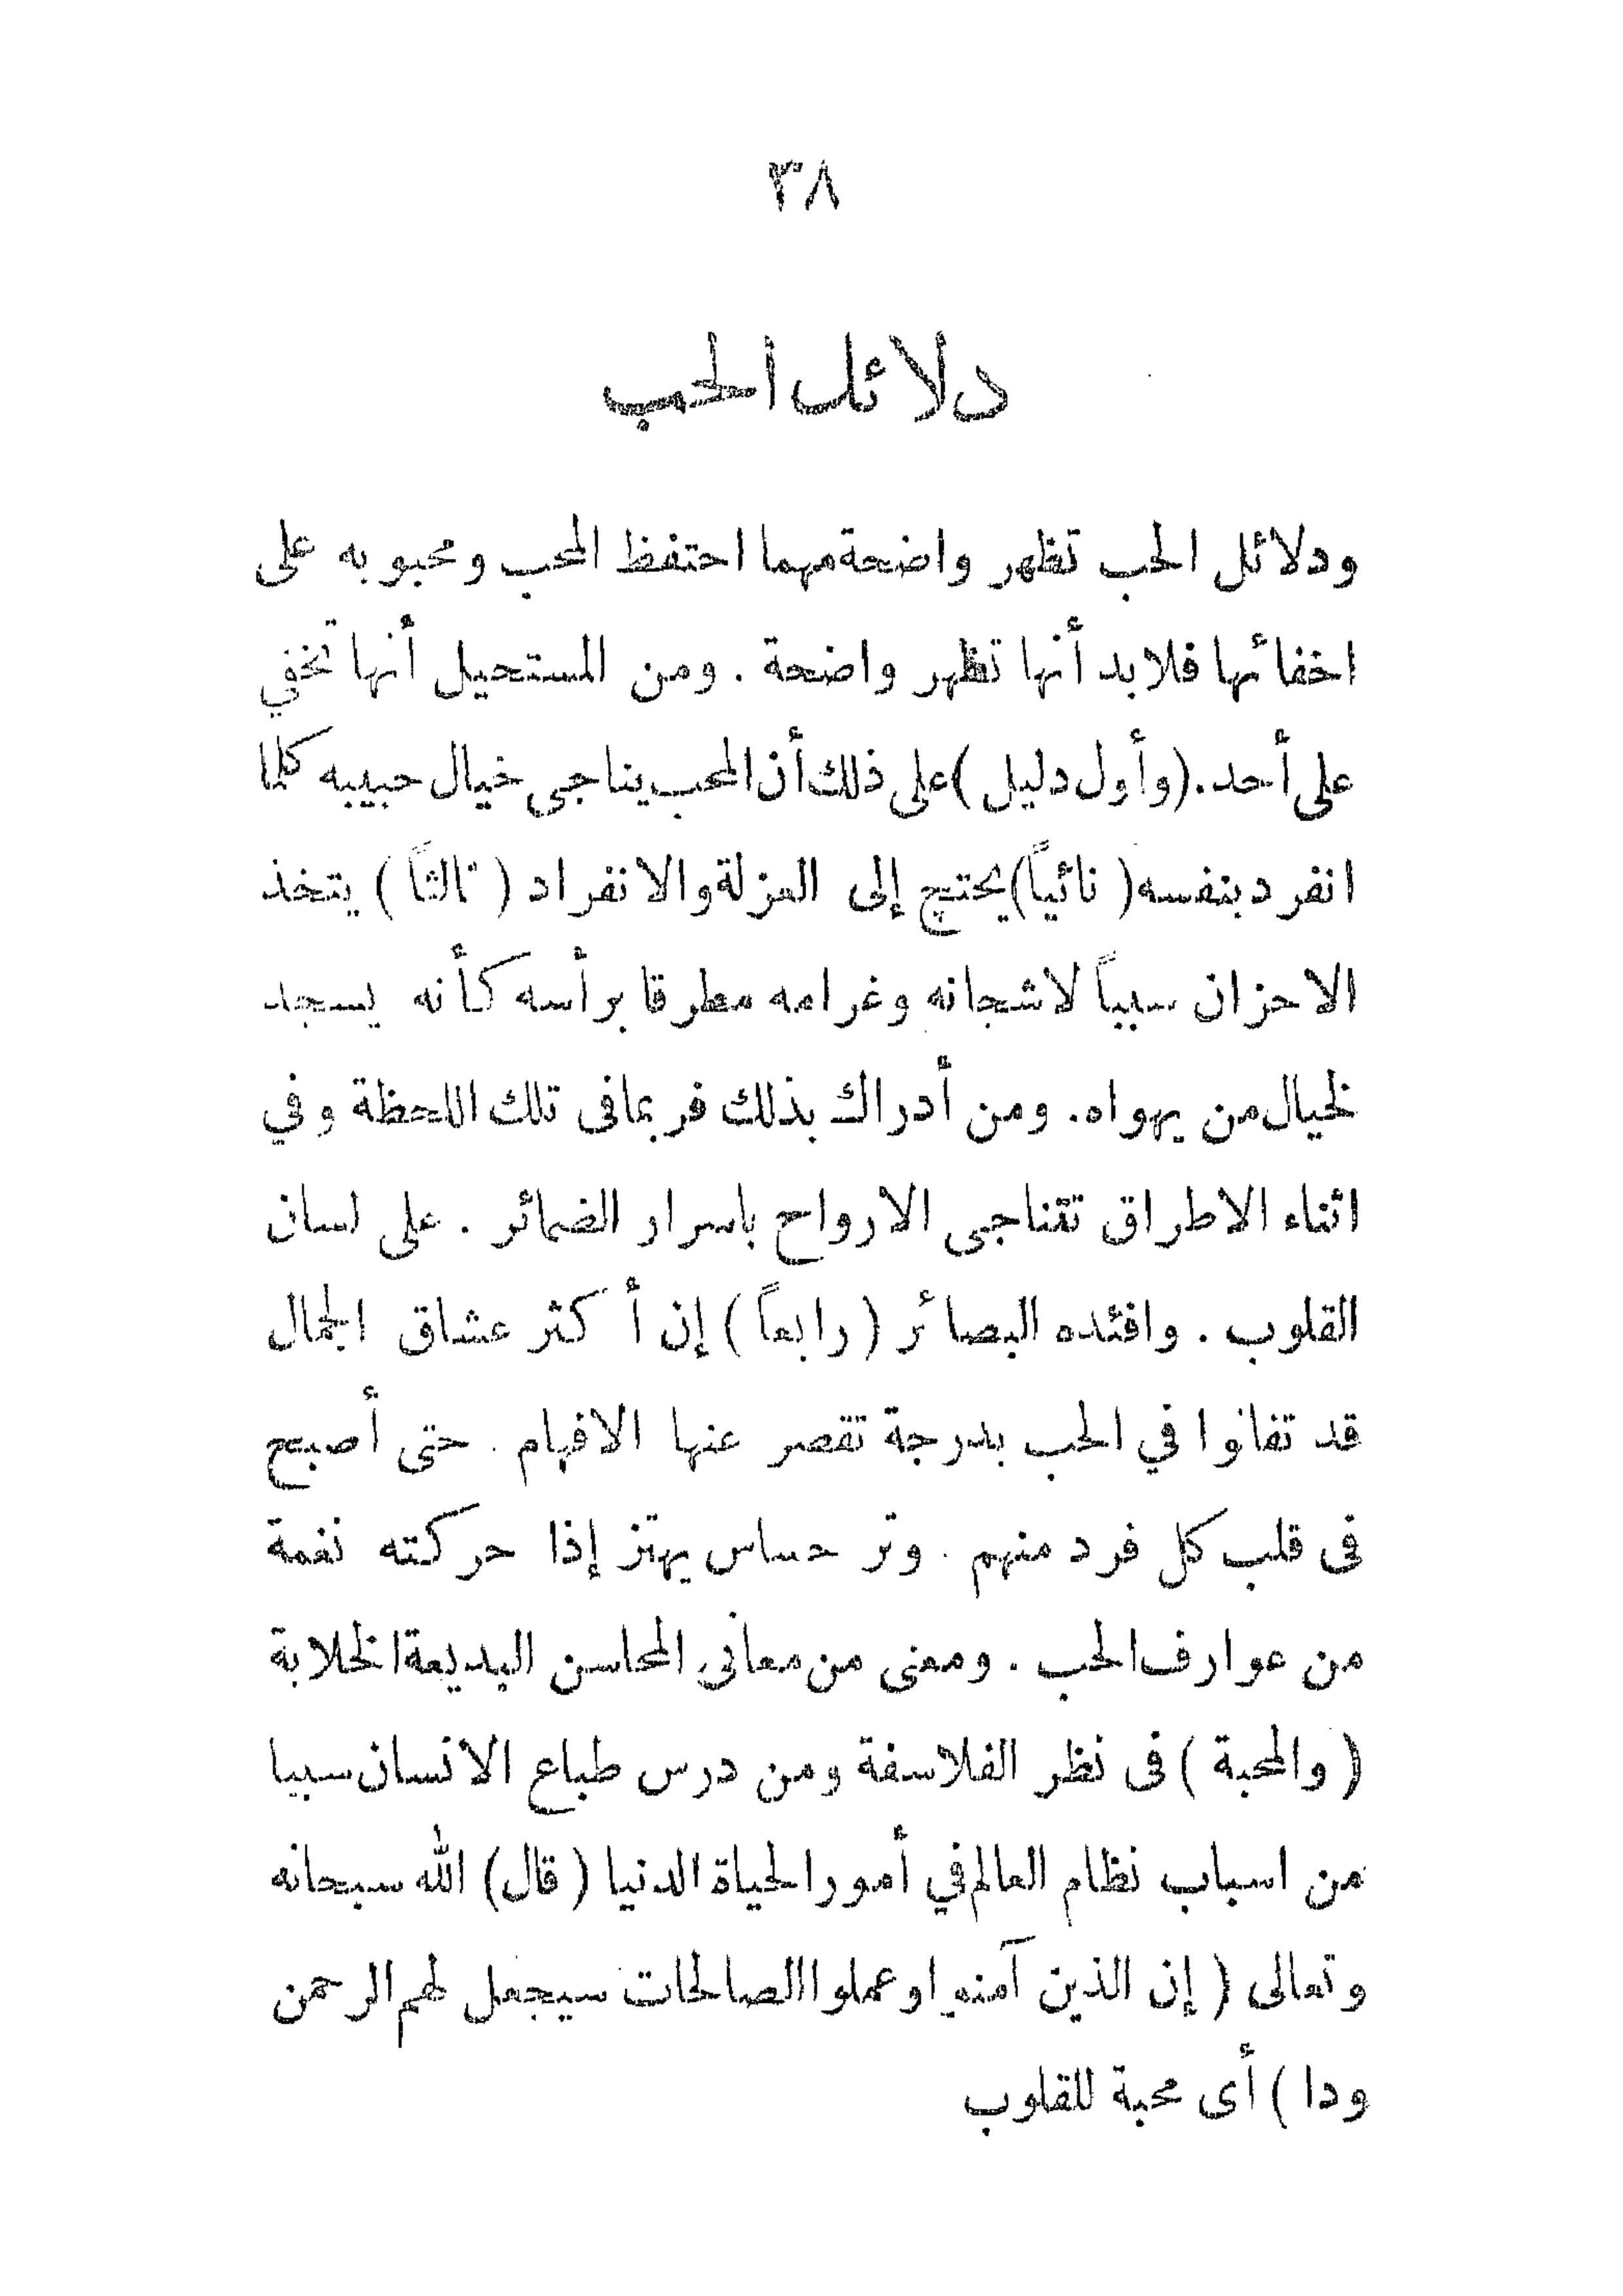 ٣٨
دلائل الحب
ودلائل الحب تظهر واضحة مهما احتفظ المحب ومحبوبه على
اخفائها فلابد أنها تظهر واضحة . ومن المستحيل أنها تخفي
على أحد . (وأول دليل) على ذلك أن المحب يناجى خيال حبيبه كلما
انفرد بنفسه ( نائياً) يحتج إلى العزلة والانفراد ( ثالثاً ) يتخذ
الاحزان سبباً لاشجانه وغرامه مطرقا برأسه كأنه يسجد
لخيال من يهواه . ومن أدراك بذلك فربما فى تلك اللحظة وفي
اثناء الاطراق تتناجى الارواح باسرار الضمائر . على لسان
القلوب . وافئده البصائر ( رابعاً ) إن أكثر عشاق الجمال
قد تفانوا في الحب بدرجة تقصر عنها الافهام . حتى أصبح
فى قلب كل فرد منهم . وتر حساس يهتز إذا حركته نغمة
من عوارف الحب . ومعنى من معانى المحاسن البديعة الخلابة
( والمحبة ) فى نظر الفلاسفة ومن درس طباع الانسان سببا
من اسباب نظام العالم في أمور الحياة الدنيا ( قال) الله سبحانه
وتعالى ( إن الذين آمنوا وعملوا الصالحات سيجعل لهم الرحمن
ودا ) أى محبة للقلوب